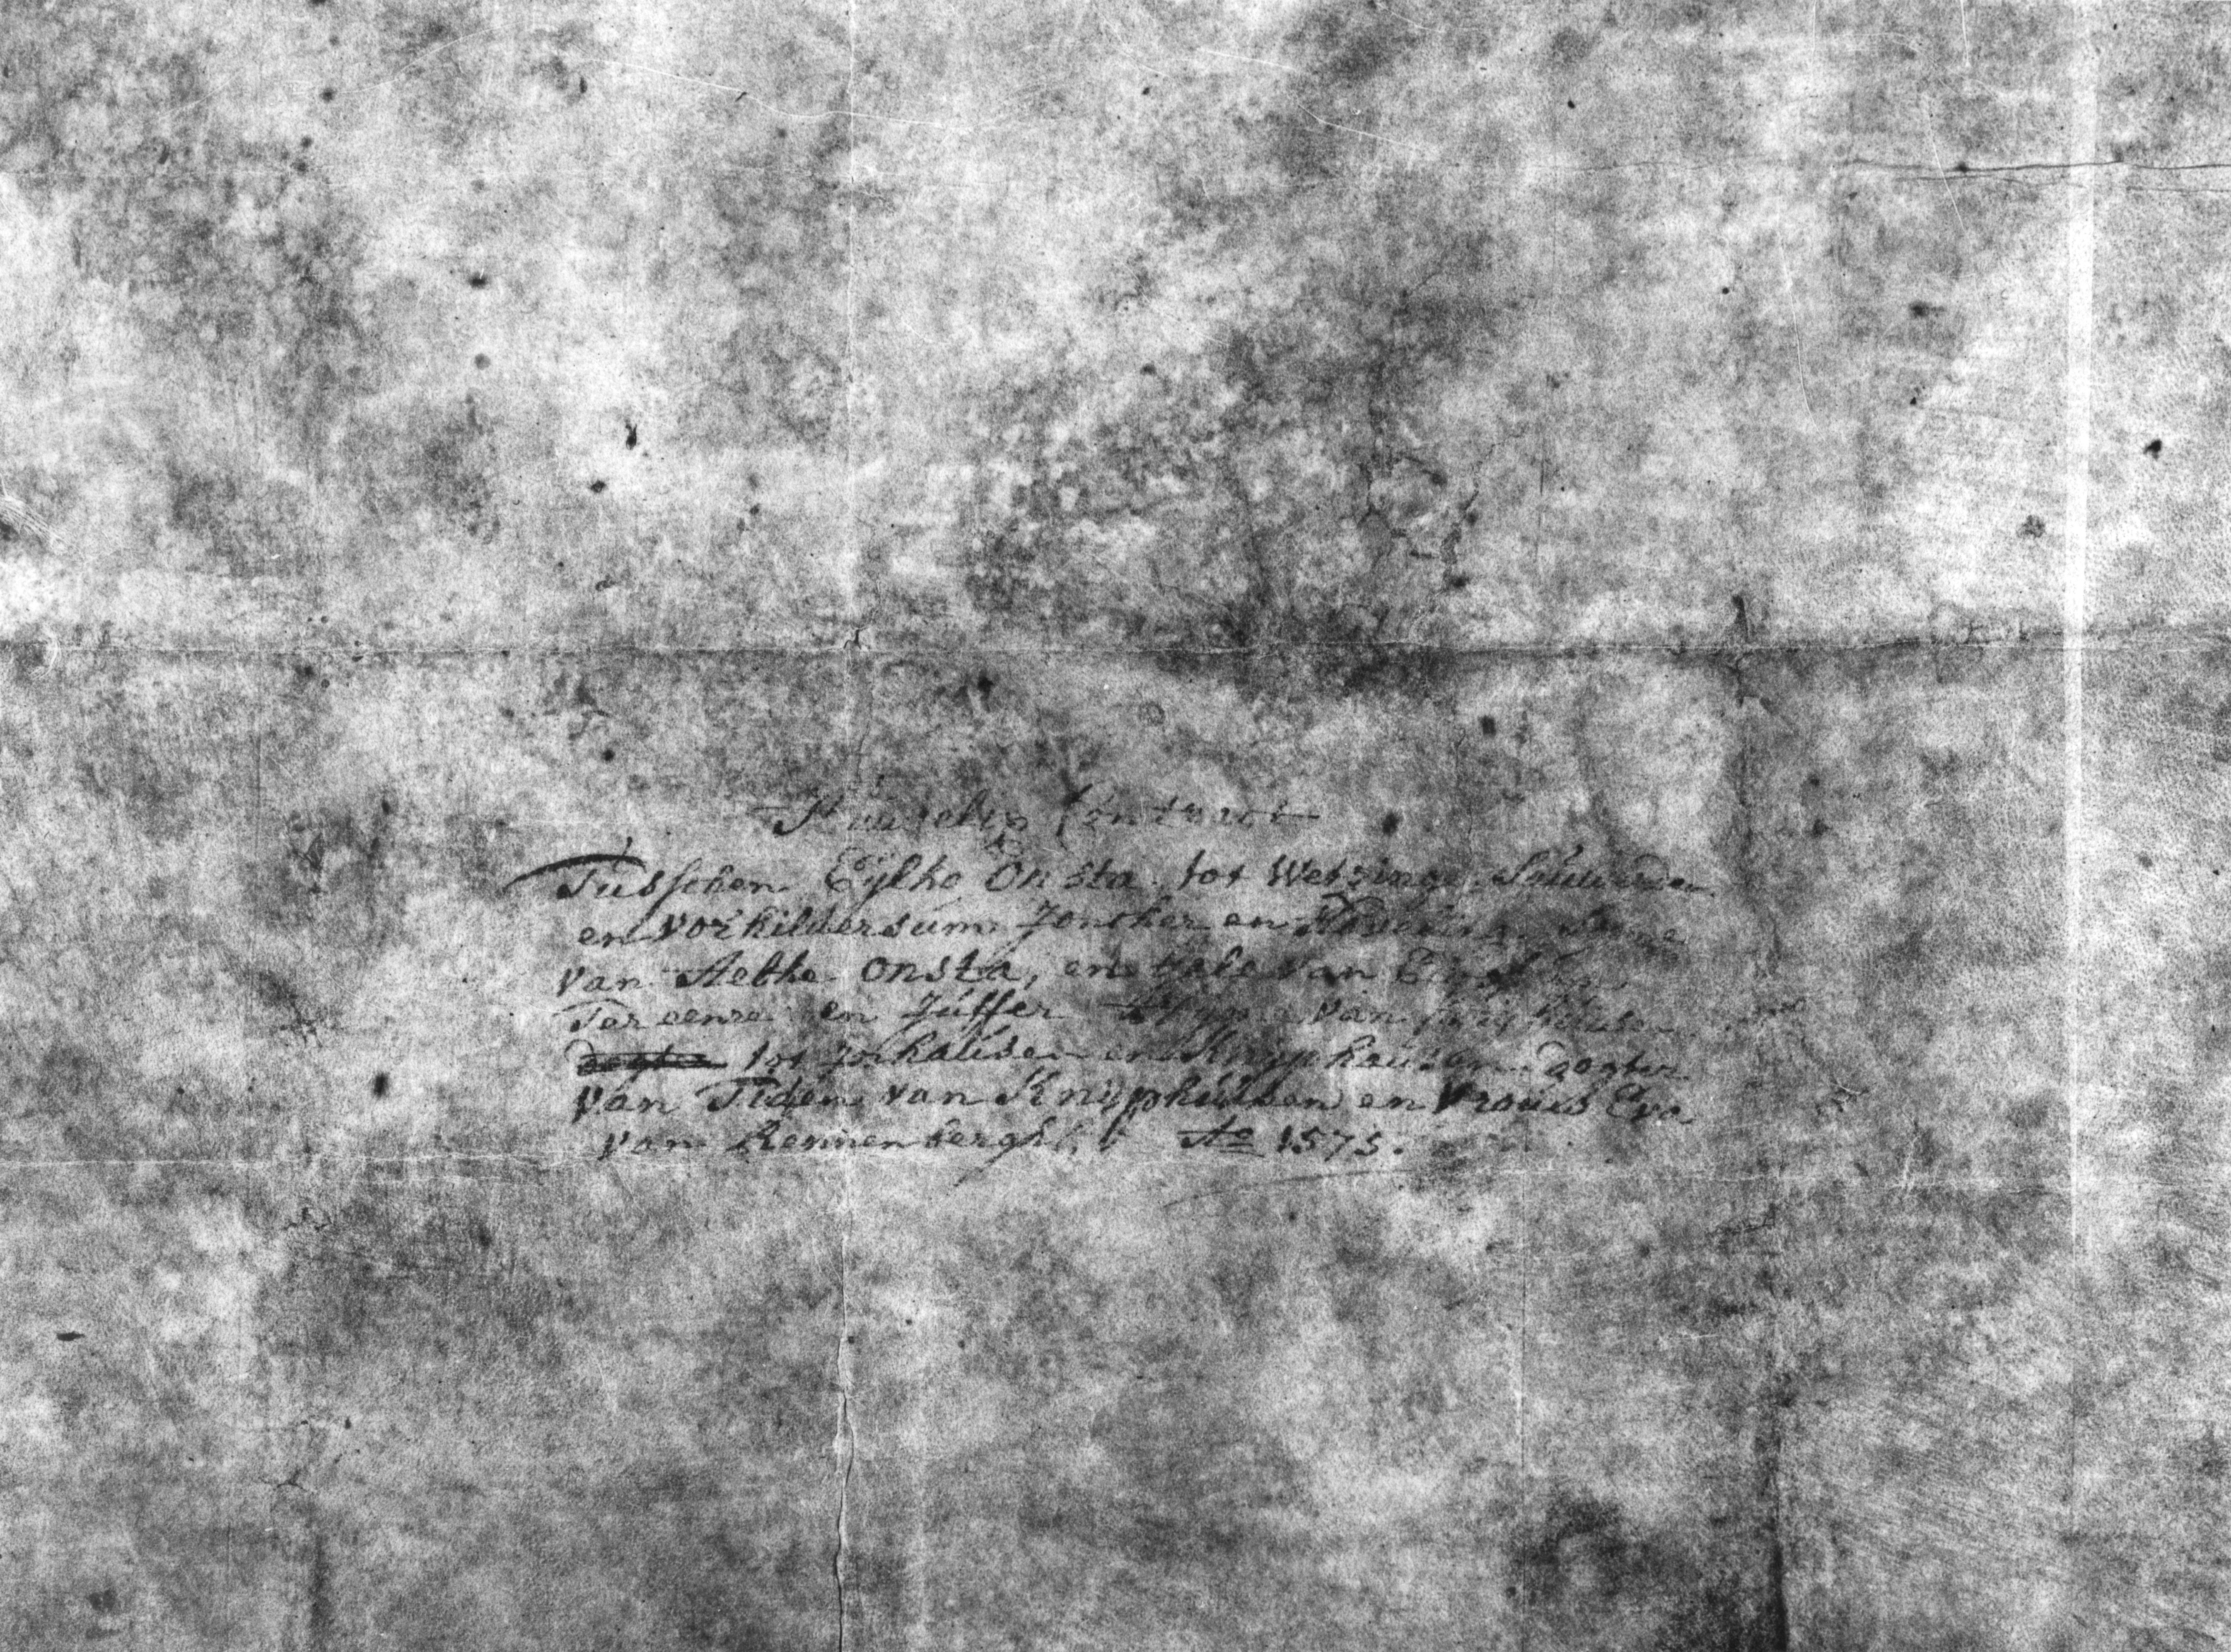 Huuwelix Contract
Tusschen Eylko Onsta tot Wetzinge, Sauwerdt
en Vor hildersum Joncker en Hoveling, Sone
van Aebke Onsta, en van
Ter eenre en Juffer van
tot Inhausen en Knyphausen dogter
van Tiden van Knyphuisen en Vrouw Eva
van Rennenbergh Ao 1575.